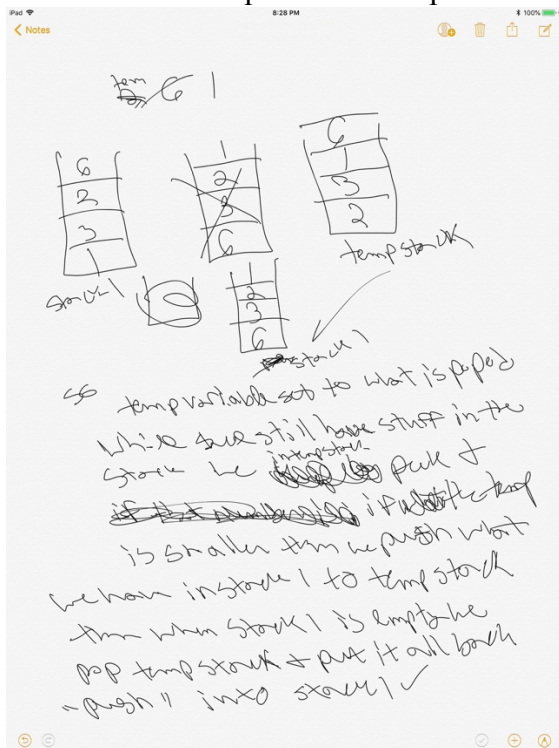 iPad 8:28 PM 100%
Notes
tem 6 1
6 1 6
2 2 1
3 3 3
1 6 2
temp stack
stack 1
1
2
3
6
stack 1
so temp variable set to what is poped
while we still have stuff in the
in temp stack
stack we peek &
if the temp
is smaller then we push what
we have in stack 1 to temp stack
then when stack 1 is empty we
pop temp stack & put it all back
"push" into stack 1